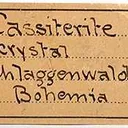 Cassiterite
crystal
chlaggenwald
Bohemia